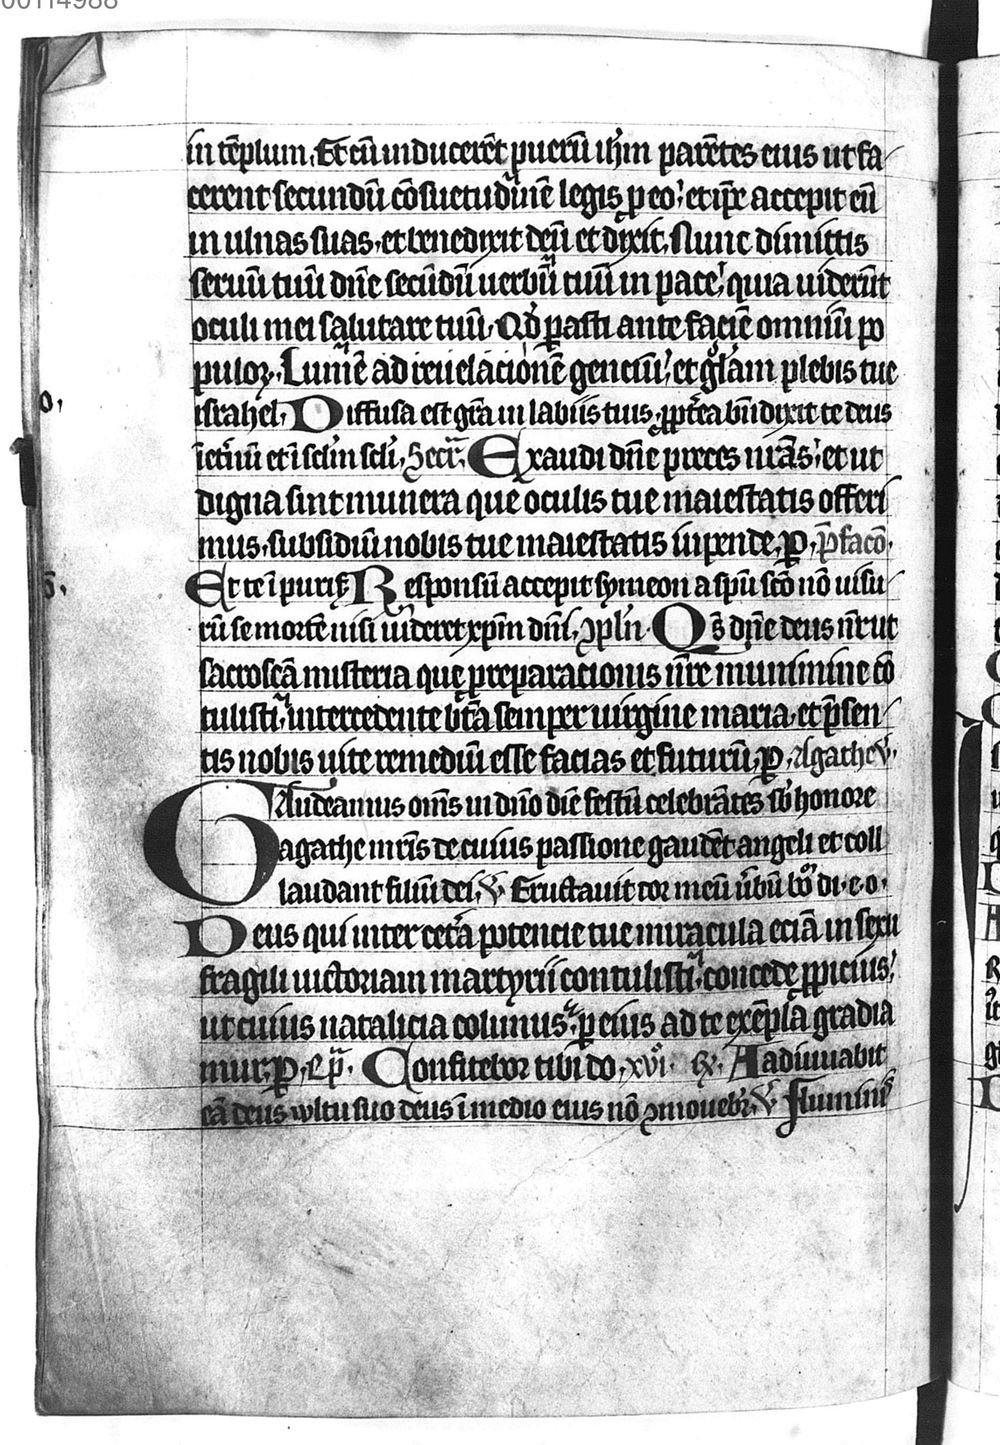 00114988
in te̅plum. Et cu̅ inducere̅t pueru̅ ih̅m pare̅tes eius ut fa
cerent secundu̅ co̅suetudine̅ legis p eo. et ip̅e accepit eu̅
in ulnas suas. et benedixit deu̅ et dixit. Nunc dimittis
seruu̅ tuu̅ dn̅e secu̅du̅ uerbu̅ tuu̅ in pace. quia uideru̅t
oculi mei salutare tuu̅. Qd̅ p̅asti ante facie̅ omniu̅ po
puloꝝ. Lume̅ ad reuelacione̅ genciu̅. et gl̅am plebis tue
o. israhel. Diffusa est gr̅a in labiis tuis. ꝓpt̅ea bn̅dixit te deus
i̅ et̅nu̅ et i̅ scl̅m scl̅i. Secr̅. Exaudi dn̅e preces nr̅as. et ut
digna sint munera que oculis tue maiestatis offeri
mus. subsidiu̅ nobis tue maiestatis inpende. p̲. p̅faco̅.
Et te i̅ purif. Responsu̅ accepit symeon a spu̅ sc̅o no̅ uisu
ru̅ se morte̅ nisi uideret xp̅m dn̅i. ꝯpln̅. Qs̅ dn̅e deus nr̅ ut
sacrosc̅a misteria que p̲ reparacionis nr̅e munimine co̅
tulisti. intercedente bt̅a semper uirgine maria. et p̅sen
tis nobis uite remediu̅ esse facias et futuru̅. p̲. Agathe v̅.
Gaudeamus om̅s in dn̅o die̅ festu̅ celebra̅tes sb̅ honore
agathe mr̅is de cuius passione gaude̅t angeli et coll
laudant filiu̅ dei. ℣ Eructauit cor meu̅ u̅bu̅ bo̅ di. e. o.
Deus qui inter cet̅a potencie tue miracula ecia̅ in sexu
fragili uictoriam martyrii contulisti. concede ꝓpicius.
ut cuius natalicia colimus. p̲ eius ad te exe̅pla gradia
mur. p̲. Ep̅. Confitebor tibi do. xvi. Gr̅. Adiuuabit
ea̅ deus wltu suo deus i̅ medio eius no̅ ꝯmouebr̅. ℣ Fluminis